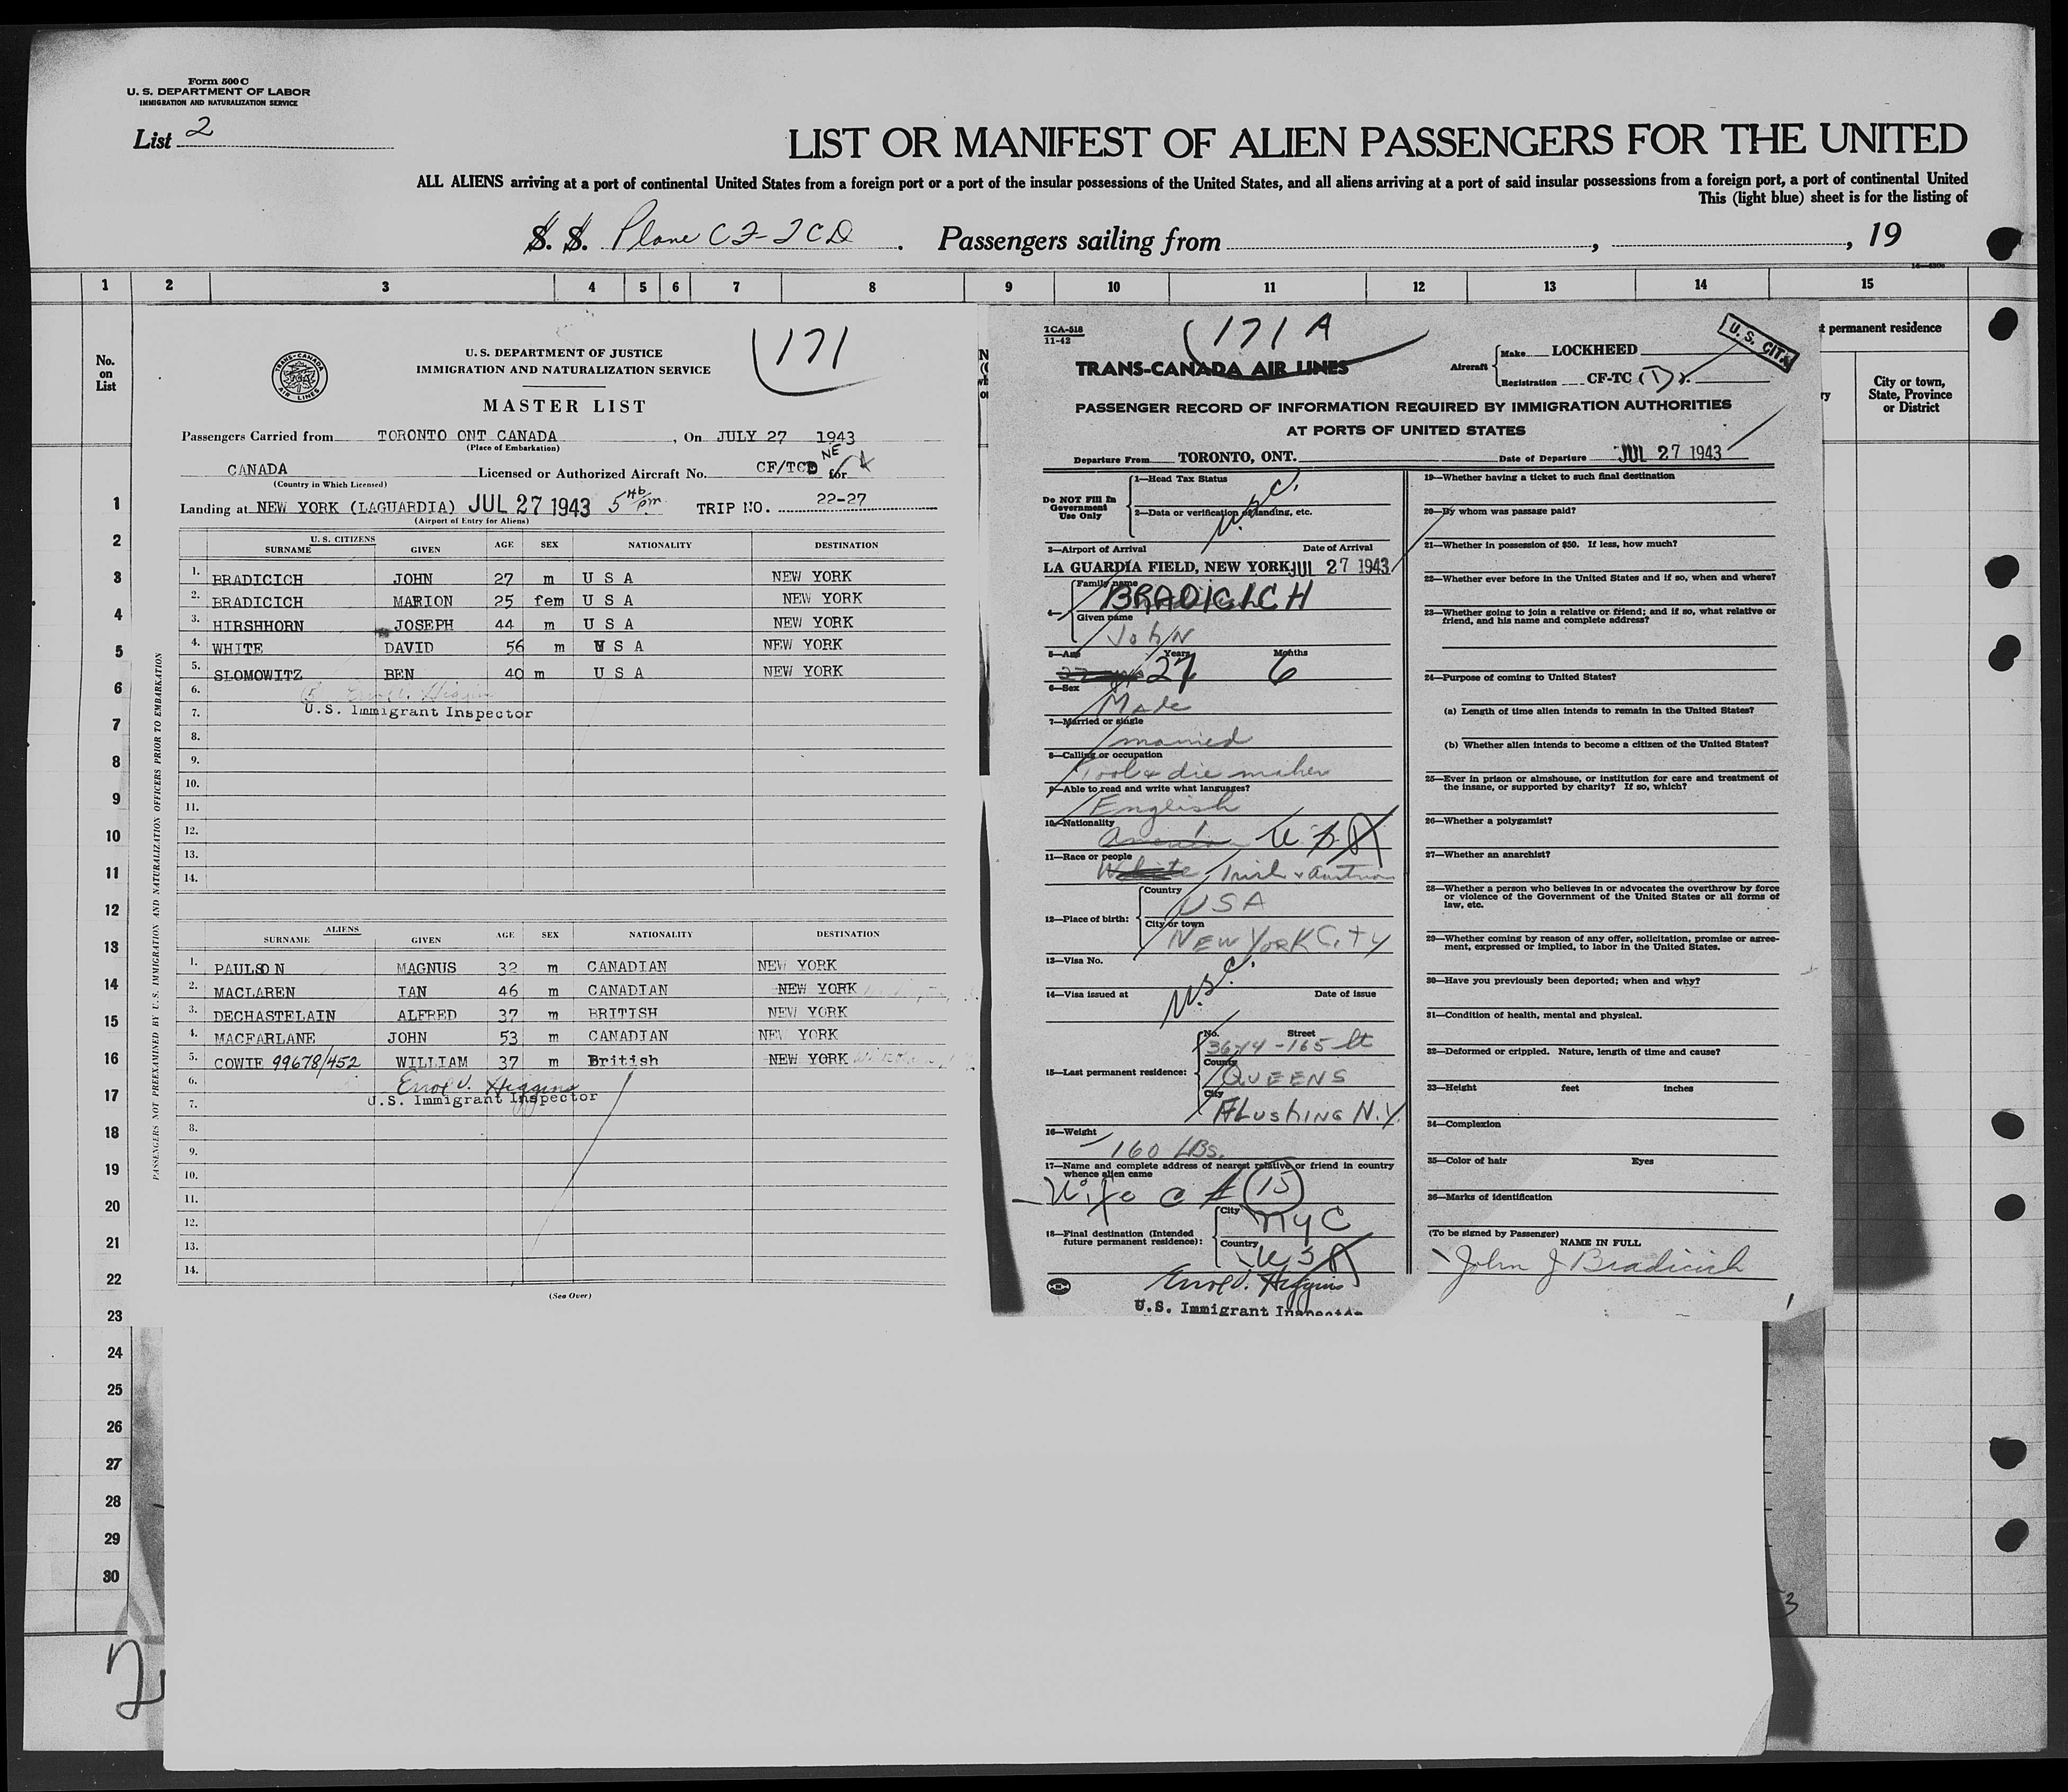 Form 500 C
U. S. DEPARTMENT OF LABOR
IMMIGRATION AND NATURALIZATION SERVICE
List 2
LIST OR MANIFEST OF ALIEN PASSENGERS FOR THE UNITED
ALL ALIENS arriving at a port of continental United States from a foreign port or a port of the insular possessions of the United States, and all aliens arriving at a port of said insular possessions from a foreign port, a port of continental United
This (light blue) sheet is for the listing of
S. S. Plane CF-TCD . Passengers sailing from , , 19
1 2 3 4 5 6 7 8 9 10 11 12 13 14 15
No. on List
t permanent residence
City or town, State, Province or District
1
2
3
4
5
6
7
8
9
10
11
12
13
14
15
16
17
18
19
20
21
22
23
24
25
26
27
28
29
30
2
3
PASSENGERS NOT PREEXAMINED BY U.S. IMMIGRATION AND NATURALIZATION OFFICERS PRIOR TO EMBARKATION
TRANS-CANADA AIR LINES
171
U.S. DEPARTMENT OF JUSTICE
IMMIGRATION AND NATURALIZATION SERVICE
MASTER LIST
Passengers Carried from TORONTO ONT CANADA , On JULY 27 1943
(Place of Embarkation)
CANADA Licensed or Authorized Aircraft No. CF/TCD NE for
(Country in Which Licensed)
Landing at NEW YORK (LAGUARDIA) JUL 27 1943 5 46 pm TRIP NO. 22-27
(Airport of Entry for Aliens)
U.S. CITIZENS
SURNAME GIVEN AGE SEX NATIONALITY DESTINATION
1. BRADICICH JOHN 27 m U S A NEW YORK
2. BRADICICH MARION 25 fem U S A NEW YORK
3. HIRSHHORN JOSEPH 44 m U S A NEW YORK
4. WHITE DAVID 56 m U S A NEW YORK
5. SLOMOWITZ BEN 40 m U S A NEW YORK
6. Errol V. Higgins
7. U.S. Immigrant Inspector
8.
9.
10.
11.
12.
13.
14.
ALIENS
SURNAME GIVEN AGE SEX NATIONALITY DESTINATION
1. PAULSON MAGNUS 32 m CANADIAN NEW YORK
2. MACLAREN IAN 46 m CANADIAN NEW YORK
3. DECHASTELAIN ALFRED 37 m BRITISH NEW YORK
4. MACFARLANE JOHN 53 m CANADIAN NEW YORK
5. COWIE 99678/452 WILLIAM 37 m British NEW YORK
6. Errol V. Higgins
7. U.S. Immigrant Inspector
8.
9.
10.
11.
12.
13.
14.
(See Over)
TCA-518
11-42
171 A
U. S. CIT.
TRANS-CANADA AIR LINES
Aircraft Make LOCKHEED
Registration CF-TC (T)
PASSENGER RECORD OF INFORMATION REQUIRED BY IMMIGRATION AUTHORITIES
AT PORTS OF UNITED STATES
Departure From TORONTO, ONT. Date of Departure JUL 27 1943
Do NOT Fill In Government Use Only
1—Head Tax Status
U.S.C.
2—Data or verification of landing, etc.
3—Airport of Arrival Date of Arrival
LA GUARDIA FIELD, NEW YORK JUL 27 1943
4— Family name
BRADICICH
Given name
John
5—Age Years Months
27 6
6—Sex
Male
7—Married or single
married
8—Calling or occupation
Tool & die maker
9—Able to read and write what languages?
English
10—Nationality
American U S A
11—Race or people
White Irish & Austrian
12—Place of birth: Country
USA
City or town
NEW YORK CITY
13—Visa No.
U.S.C.
14—Visa issued at Date of issue
15—Last permanent residence: No. Street
3644-165 St
County
QUEENS
City
FLUSHING N.Y.
16—Weight
160 LBS.
17—Name and complete address of nearest relative or friend in country
whence alien came
(15)
18—Final destination (Intended
future permanent residence): City
NYC
Country
USA
Errol V. Higgins
U.S. Immigrant Inspector
19—Whether having a ticket to such final destination
20—By whom was passage paid?
21—Whether in possession of $50. If less, how much?
22—Whether ever before in the United States and if so, when and where?
23—Whether going to join a relative or friend; and if so, what relative or
friend, and his name and complete address?
24—Purpose of coming to United States?
(a) Length of time alien intends to remain in the United States?
(b) Whether alien intends to become a citizen of the United States?
25—Ever in prison or almshouse, or institution for care and treatment of
the insane, or supported by charity? If so, which?
26—Whether a polygamist?
27—Whether an anarchist?
28—Whether a person who believes in or advocates the overthrow by force
or violence of the Government of the United States or all forms of
law, etc.
29—Whether coming by reason of any offer, solicitation, promise or agree-
ment, expressed or implied, to labor in the United States.
30—Have you previously been deported; when and why?
31—Condition of health, mental and physical.
32—Deformed or crippled. Nature, length of time and cause?
33—Height feet inches
34—Complexion
35—Color of hair Eyes
36—Marks of identification
(To be signed by Passenger)
NAME IN FULL
John J Bradicich